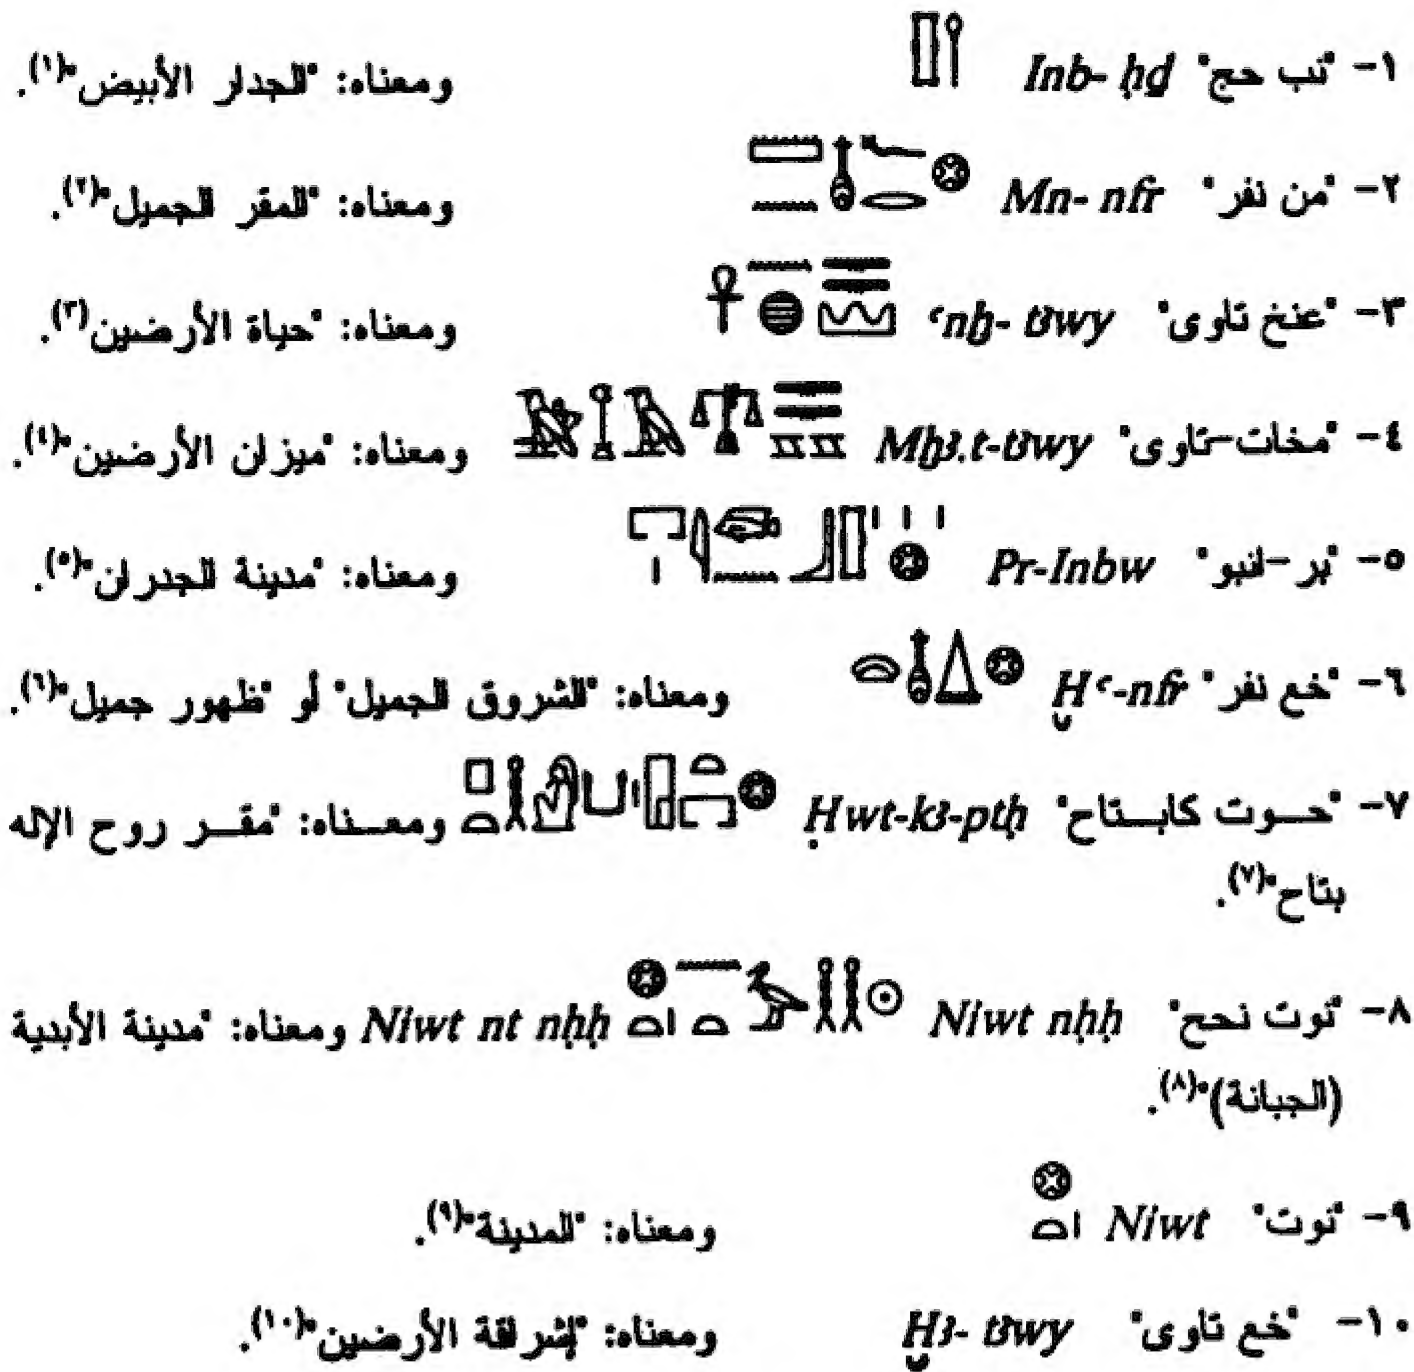 ١- "نب حج" Inb- ḥḏ 𓊅𓌉 ومعناه: "الجدار الأبيض"(١).
٢- "من نفر" Mn- nfr 𓏠𓈖𓄤𓆑𓂋𓊖 ومعناه: "المقر الجميل"(٢).
٣- "عنخ تاوى" ꜥnḫ- tꜣwy ومعناه: "حياة الأرضين(٣).
٤- "مخات-تاوى" Mḫꜣ.t-tꜣwy ومعناه: "ميزان الأرضين"(٤).
٥- "بر-انبو" Pr-Inbw ومعناه: "مدينة الجدران"(٥).
٦- "خع نفر" Ḫꜥ-nfr ومعناه: "الشروق الجميل" أو "ظهور جميل"(٦).
٧- "حـوت كابـتاح" Ḥwt-kꜣ-ptḥ ومعـناه: "مقـر روح الإله
بتاح"(٧).
٨- "نوت نحح" Niwt nḥḥ Niwt nt nḥḥ ومعناه: "مدينة الأبدية
(الجبانة)"(٨).
٩- "نوت" Niwt 𓊖𓏏𓏤 ومعناه: "المدينة"(٩).
١٠- "خع تاوى" Ḫꜣ- tꜣwy ومعناه: "إشراقة الأرضين"(١٠).